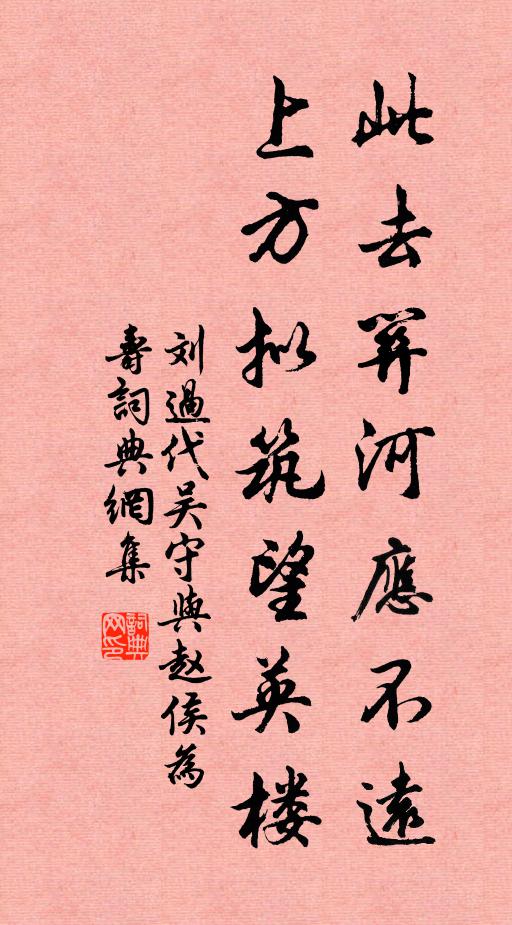 此去関河應不遠
上方拟筑望英楼
刘過代吴守與赵侯為
壽詞典網集
詞典网印